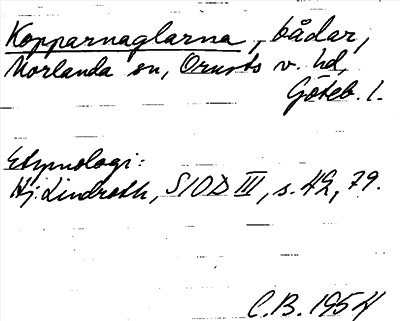 Kopparnaglarna, bådar,
Morlanda sn, Orusts v. hd,
Göteb. l.
Etymologi:
Hj. Lindroth, SIOD III, s. 42, 79.
C.B. 1954